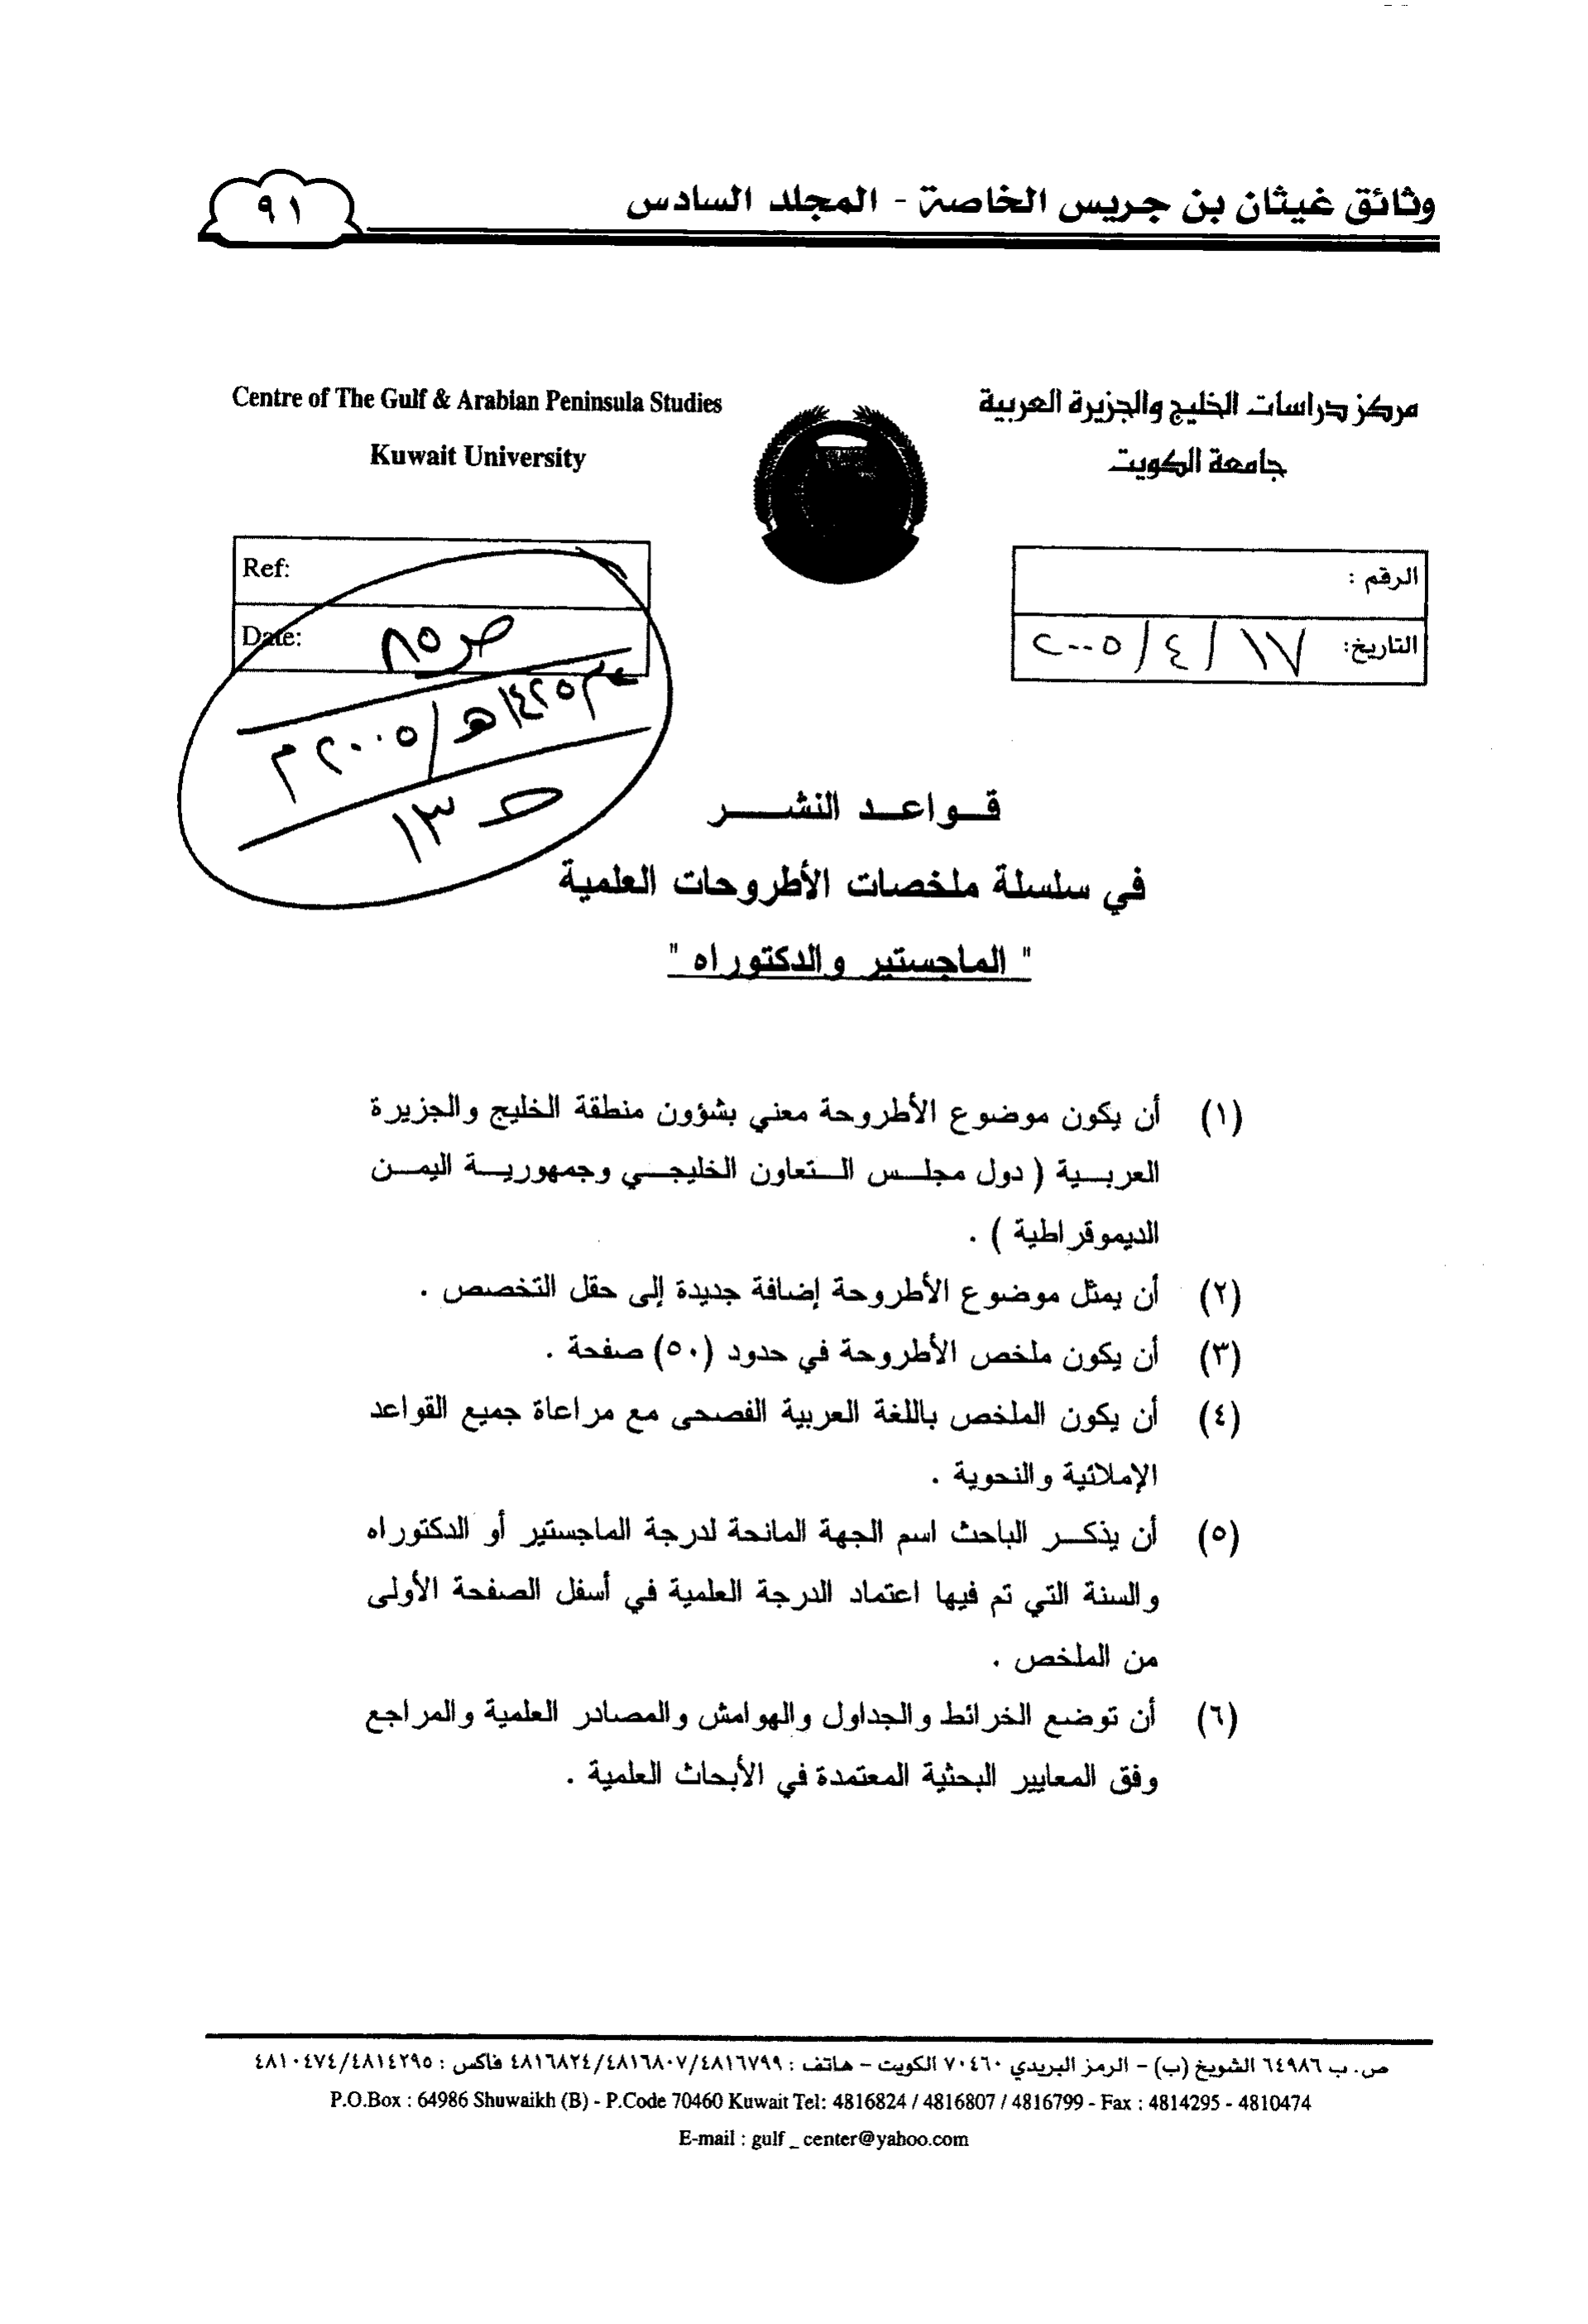 وثائق غيثان بن جريس الخاصة - المجلد السادس
٩١
مركز دراسات الخليج والجزيرة العربية
جامعة الكويت
Centre of The Gulf & Arabian Peninsula Studies
Kuwait University
الرقم :
التاريخ: ١٧ / ٤ / ٢٠٠٥
Ref:
Date:
ص ٨٥
١٤٢٥هـ / ٢٠٠٥م
١٣
قواعد النشر
في سلسلة ملخصات الأطروحات العلمية
" الماجستير والدكتوراه "
(١) أن يكون موضوع الأطروحة معني بشؤون منطقة الخليج والجزيرة
العربية ( دول مجلس التعاون الخليجي وجمهورية اليمن
الديموقراطية ) .
(٢) أن يمثل موضوع الأطروحة إضافة جديدة إلى حقل التخصص .
(٣) أن يكون ملخص الأطروحة في حدود (٥٠) صفحة .
(٤) أن يكون الملخص باللغة العربية الفصحى مع مراعاة جميع القواعد
الإملائية والنحوية .
(٥) أن يذكر الباحث اسم الجهة المانحة لدرجة الماجستير أو الدكتوراه
والسنة التي تم فيها اعتماد الدرجة العلمية في أسفل الصفحة الأولى
من الملخص .
(٦) أن توضع الخرائط والجداول والهوامش والمصادر العلمية والمراجع
وفق المعايير البحثية المعتمدة في الأبحاث العلمية .
ص. ب ٦٤٩٨٦ الشويخ (ب) – الرمز البريدي ٧٠٤٦٠ الكويت – هاتف : ٤٨١٦٨٢٤/٤٨١٦٨٠٧/٤٨١٦٧٩٩ فاكس : ٤٨١٠٤٧٤/٤٨١٤٢٩٥
P.O.Box : 64986 Shuwaikh (B) - P.Code 70460 Kuwait Tel: 4816824 / 4816807 / 4816799 - Fax : 4814295 - 4810474
E-mail : gulf _ center@yahoo.com